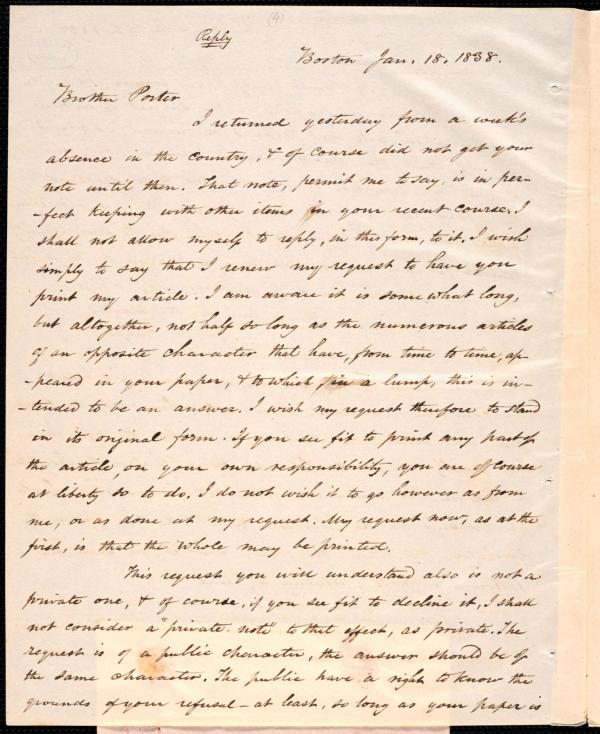 (4)
Reply
Boston Jan. 18. 1838.
Brother Porter
I returned yesterday from a week's
absence in the country, & of course did not get your
note until then. That note, permit me to say, is in per-
-fect keeping with other items in your recent course. I
shall not allow myself to reply, in this form, to it. I wish
simply to say that I renew my request to have you
print my article. I am aware it is somewhat long,
but altogether, not half so long as the numerous articles
of an opposite character that have, from time to time, ap-
-peared in your paper, & to which in a lump, this is in-
-tended to be an answer. I wish my request therefore to stand
in its original form. If you see fit to print any part of
the article, on your own responsibility, you are of course
at liberty so to do. I do not wish it to go however as from
me, or as done at my request. My request now, as at the
first, is that the whole may be printed.
This request you will understand also is not a
private one, & of course, if you see fit to decline it, I shall
not consider a "private note" to that effect, as private. The
request is of a public character, the answer should be of
the same character. The public have a right to know the
grounds of your refusal - at least, so long as your paper is